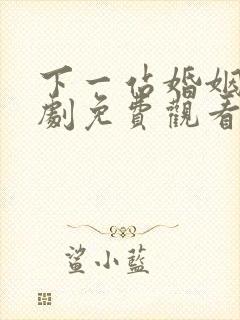 下一佔婚姻
劇免費觀看
鯊小藍